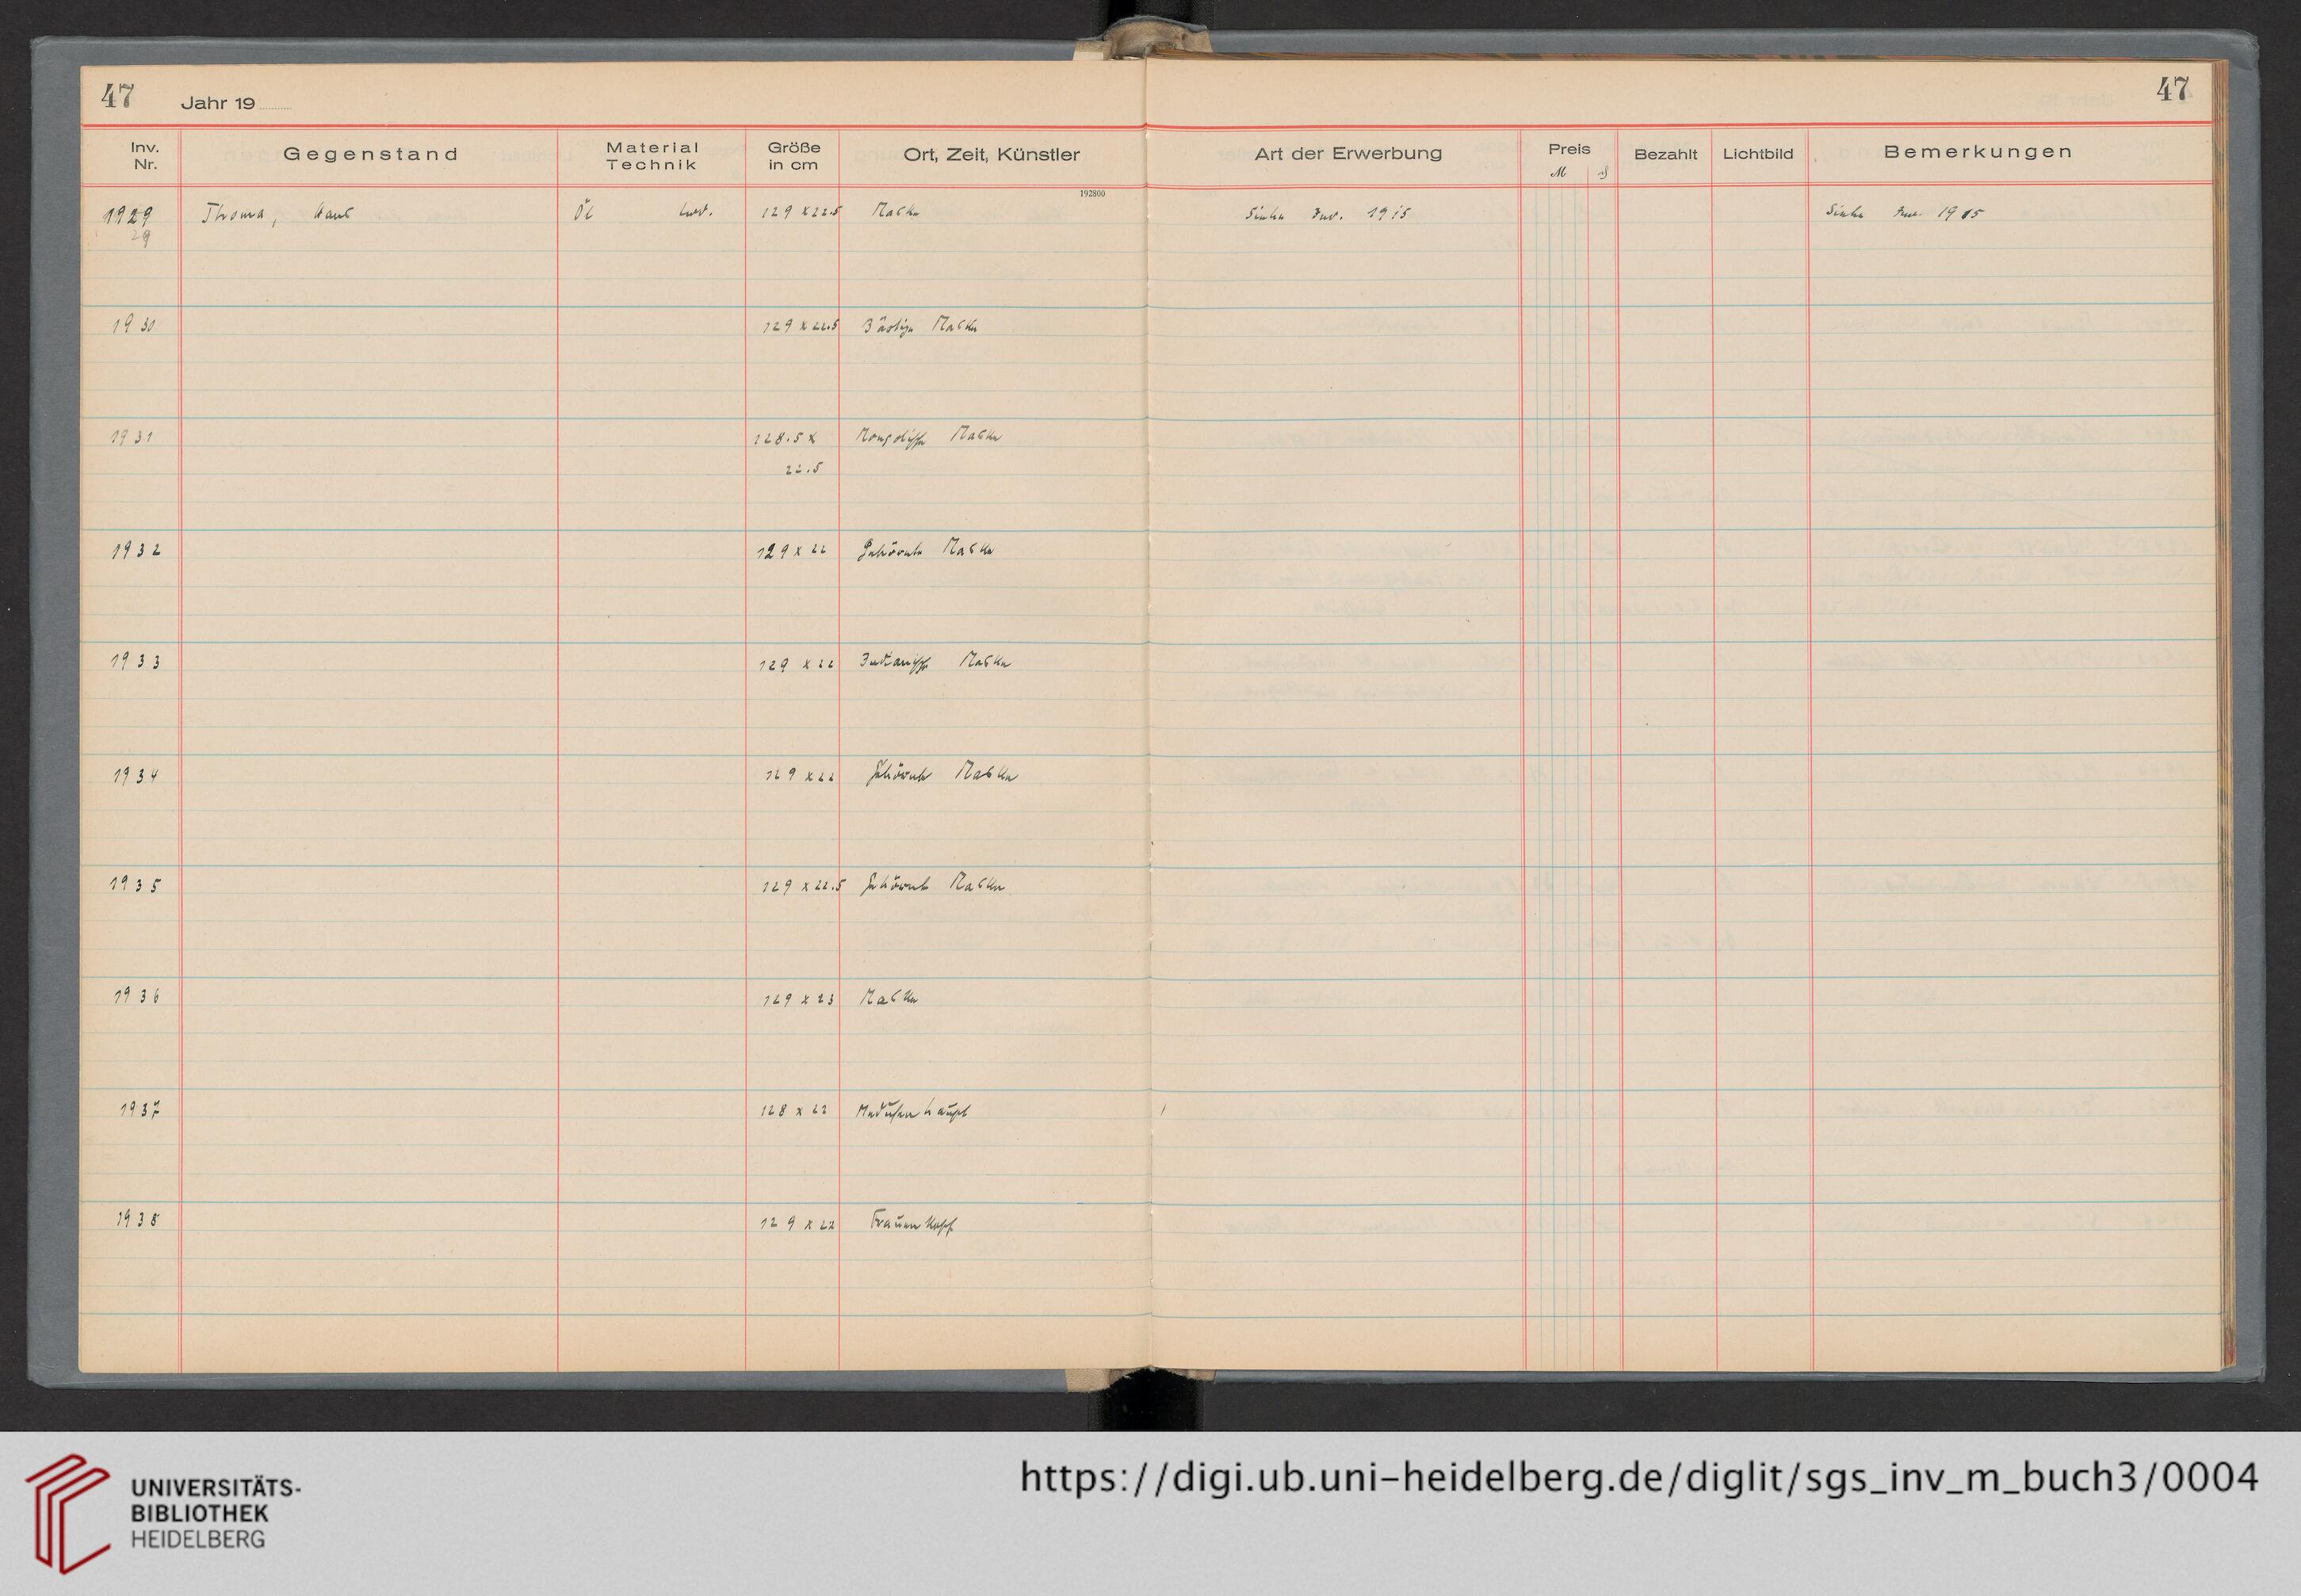 47 Jahr 19 47
Inv. Nr. Gegenstand Material Technik Größe in cm Ort, Zeit, Künstler Art der Erwerbung Preis M Bezahlt Lichtbild Bemerkungen
192800
1929 Thoma, Hans Öl Lwd. 129 x 22.5 Maske Siehe Inv. 1915 Siehe Inv. 1915
29
1930 129 x 22.5 Bärtige Maske
1931 128.5 x Mongolische Maske
22.5
1932 129 x 22 Gehörnte Maske
1933 129 x 22 Indianische Maske
1934 129 x 22 Gehörnte Maske
1935 129 x 22.5 Gehörnte Maske
1936 129 x 23 Maske
1937 128 x 22 Medusenhaupt
1938 129 x 22 Frauenkopf
UNIVERSITÄTS-
BIBLIOTHEK
HEIDELBERG
https://digi.ub.uni-heidelberg.de/diglit/sgs_inv_m_buch3/0004